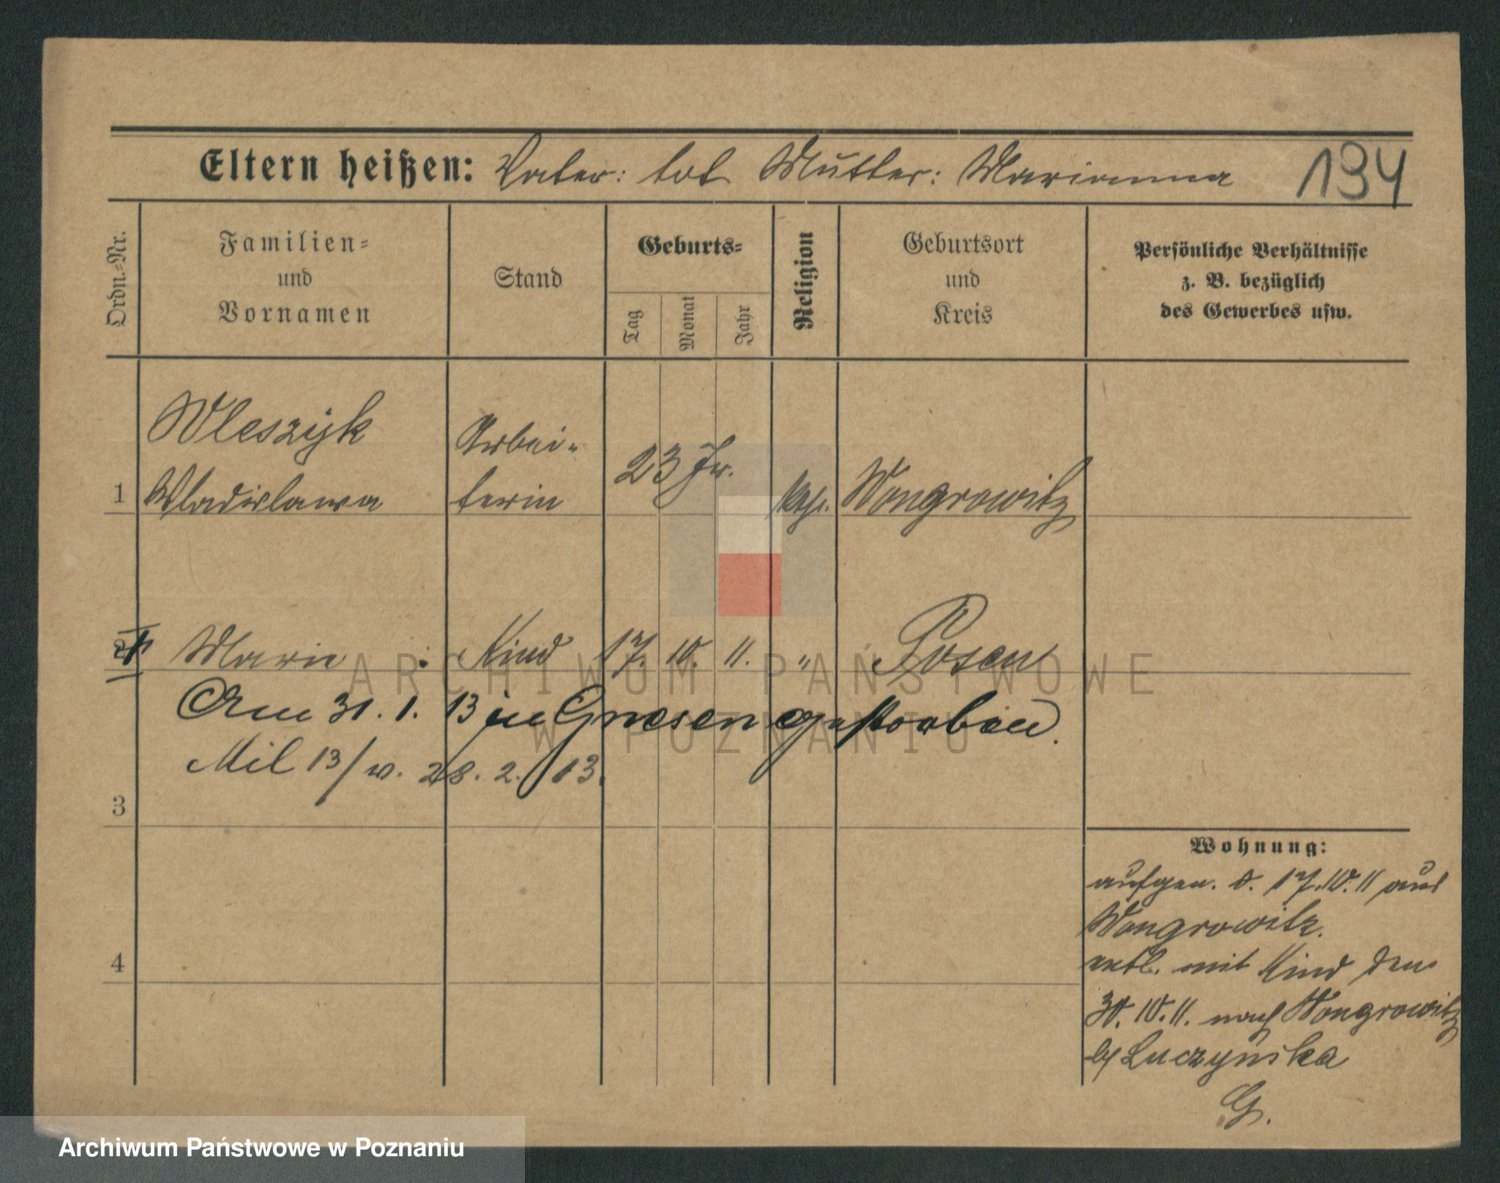 Eltern heißen: Vater: tot Mutter: Marianna 194
Ordn.-Nr.
Familien-
und
Vornamen
Stand
Geburts-
Tag
Monat
Jahr
Religion
Geburtsort
und
Kreis
Persönliche Verhältnisse
z. B. bezüglich
des Gewerbes usw.
Wleszyk Arbei-
1 Wladislawa terin 23 J. kath. Wongrowitz
2 Marie Kind 17. 10. 11. " Posen
Am 31. 1. 13 in Gnesen gestorben.
Mil 13/ w. 28. 2. 13.
3
4
Wohnung:
aufgen. d. 17.10.11 aus
Wongrowitz.
entl. mit Kind den
30.10.11. nach Wongrowitz
b/ Luczynska
G.
ARCHIWUM PAŃSTWOWE
W POZNANIU
Archiwum Państwowe w Poznaniu